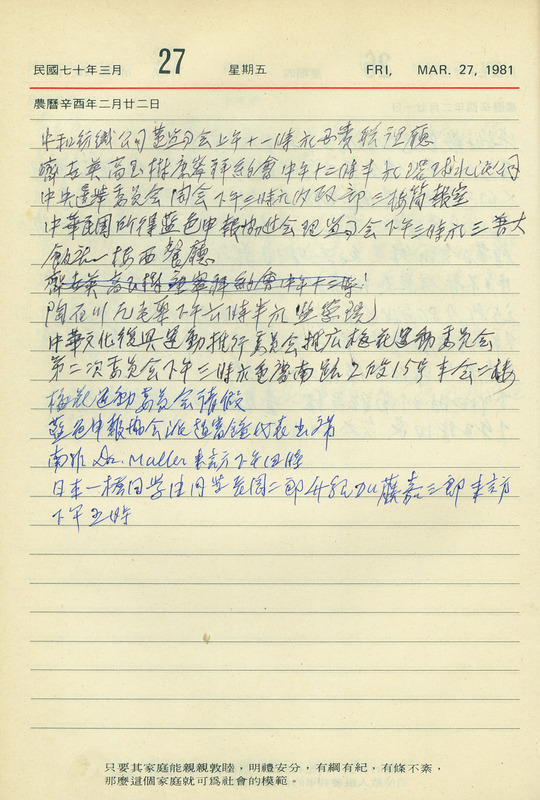 民國七十年三月 27 星期五 FRI, MAR. 27, 1981
農曆辛酉年二月廿二日
中和紡織公司董監事會上午十一時於西貴聯誼廳
齊世英高玉樹康寧祥約會中午十二時半於
中央選舉委員會 會下午三時於內政部三樓簡報室
中華民國所得藍色申報協社會理監事會下午三時於三普大
飯店一樓西餐廳
齊世英高玉樹康寧祥約會中午十二時
陶百川 下午六時半於監察院
中華文化復興運動推行委員會推広梅花運動委員會
第二次委員會下午三時於重慶南路2段15号 會二樓
梅花運動委員會請假
藍色申報協會派趙 鐘代表出席
南非 Dr. Muller 来訪下午四時
日本一橋同学 二郎 加藤嘉三郎来訪
下午五時
只要其家庭能親親敦睦，明禮安分，有綱有紀，有條不紊，
那麼這個家庭就可爲社會的模範。